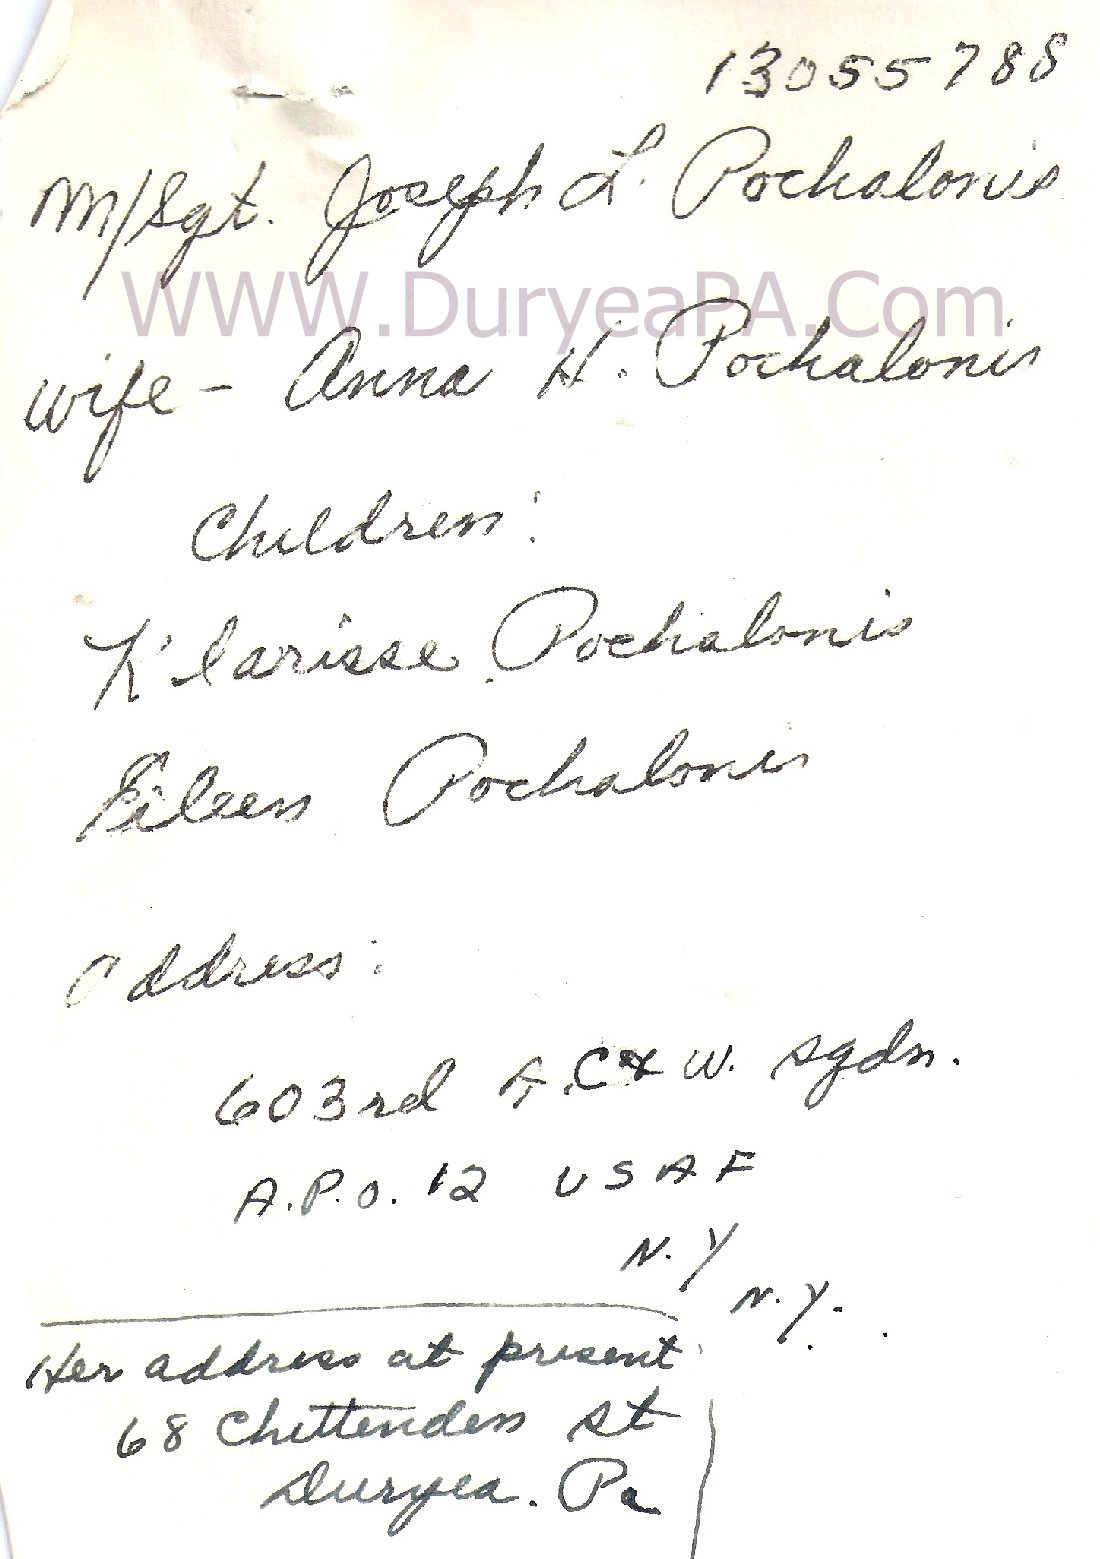 13055788
M/Sgt. Joseph L. Pochalonis
WWW.DuryeaPA.Com
wife - Anna H. Pochalonis
Children:
K'larisse Pochalonis
Eileen Pochalonis
Address:
603rd A.C & W. sqdn.
A.P.O. 12 USAF
N.Y
N.Y.
Her address at present
68 Chittenden St
Duryea. Pa